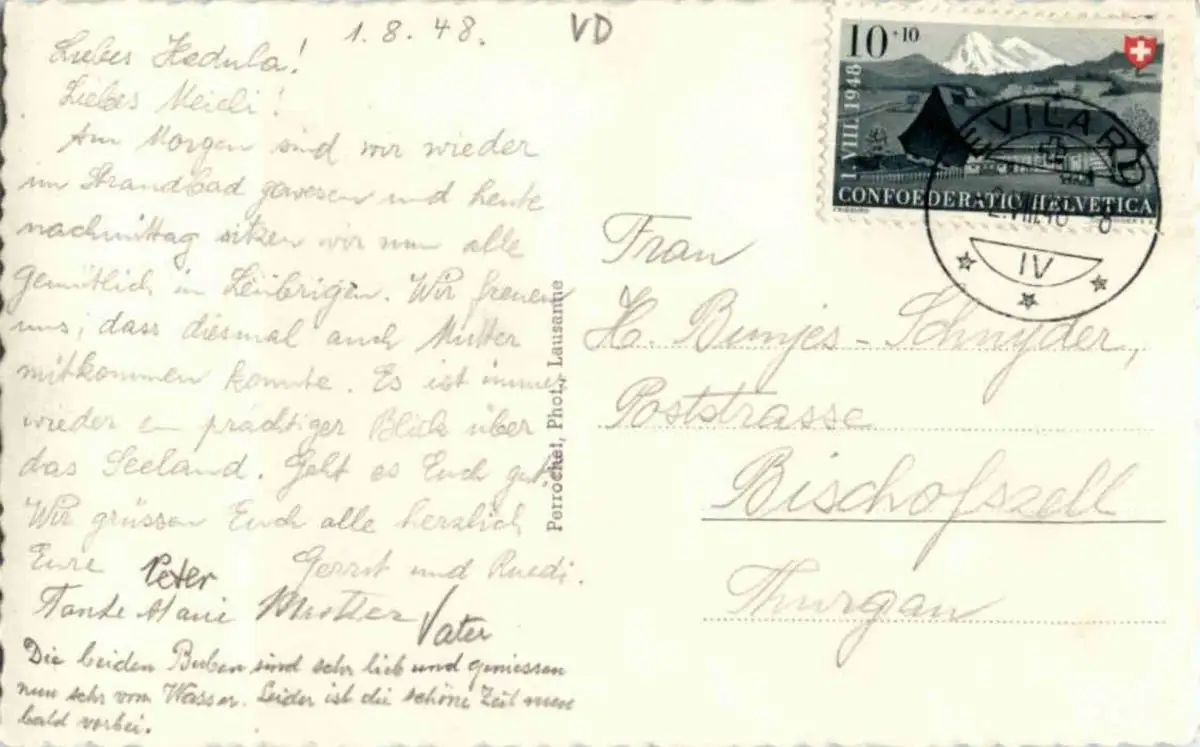 1.8.48.
VD
Liebes Hedula!
Liebes Meidi!
Am Morgen sind wir wieder
im Strandbad gewesen und heute
nachmittag sitzen wir nun alle
gemütlich in Leubrigen. Wir freuen
uns, dass diesmal auch Mutter
mitkommen konnte. Es ist immer
wieder ein prächtiger Blick über
das Seeland. Geht es Euch gut?
Wir grüssen Euch alle herzlich
Eure Peter Gerrit und Ruedi.
Tante Marie Mutter Vater
Die beiden Buben sind sehr lieb und geniessen
nun sehr vom Wasser. Leider ist die schöne Zeit nun
bald vorbei.
Perrochet, Phot., Lausanne
10+10
1. VIII. 1948
CONFOEDERATIO HELVETICA
EVILARD
2.VIII.48 -8
IV
Frau
H. Bunjes-Schnyder,
Poststrasse
Bischofszell
Thurgau